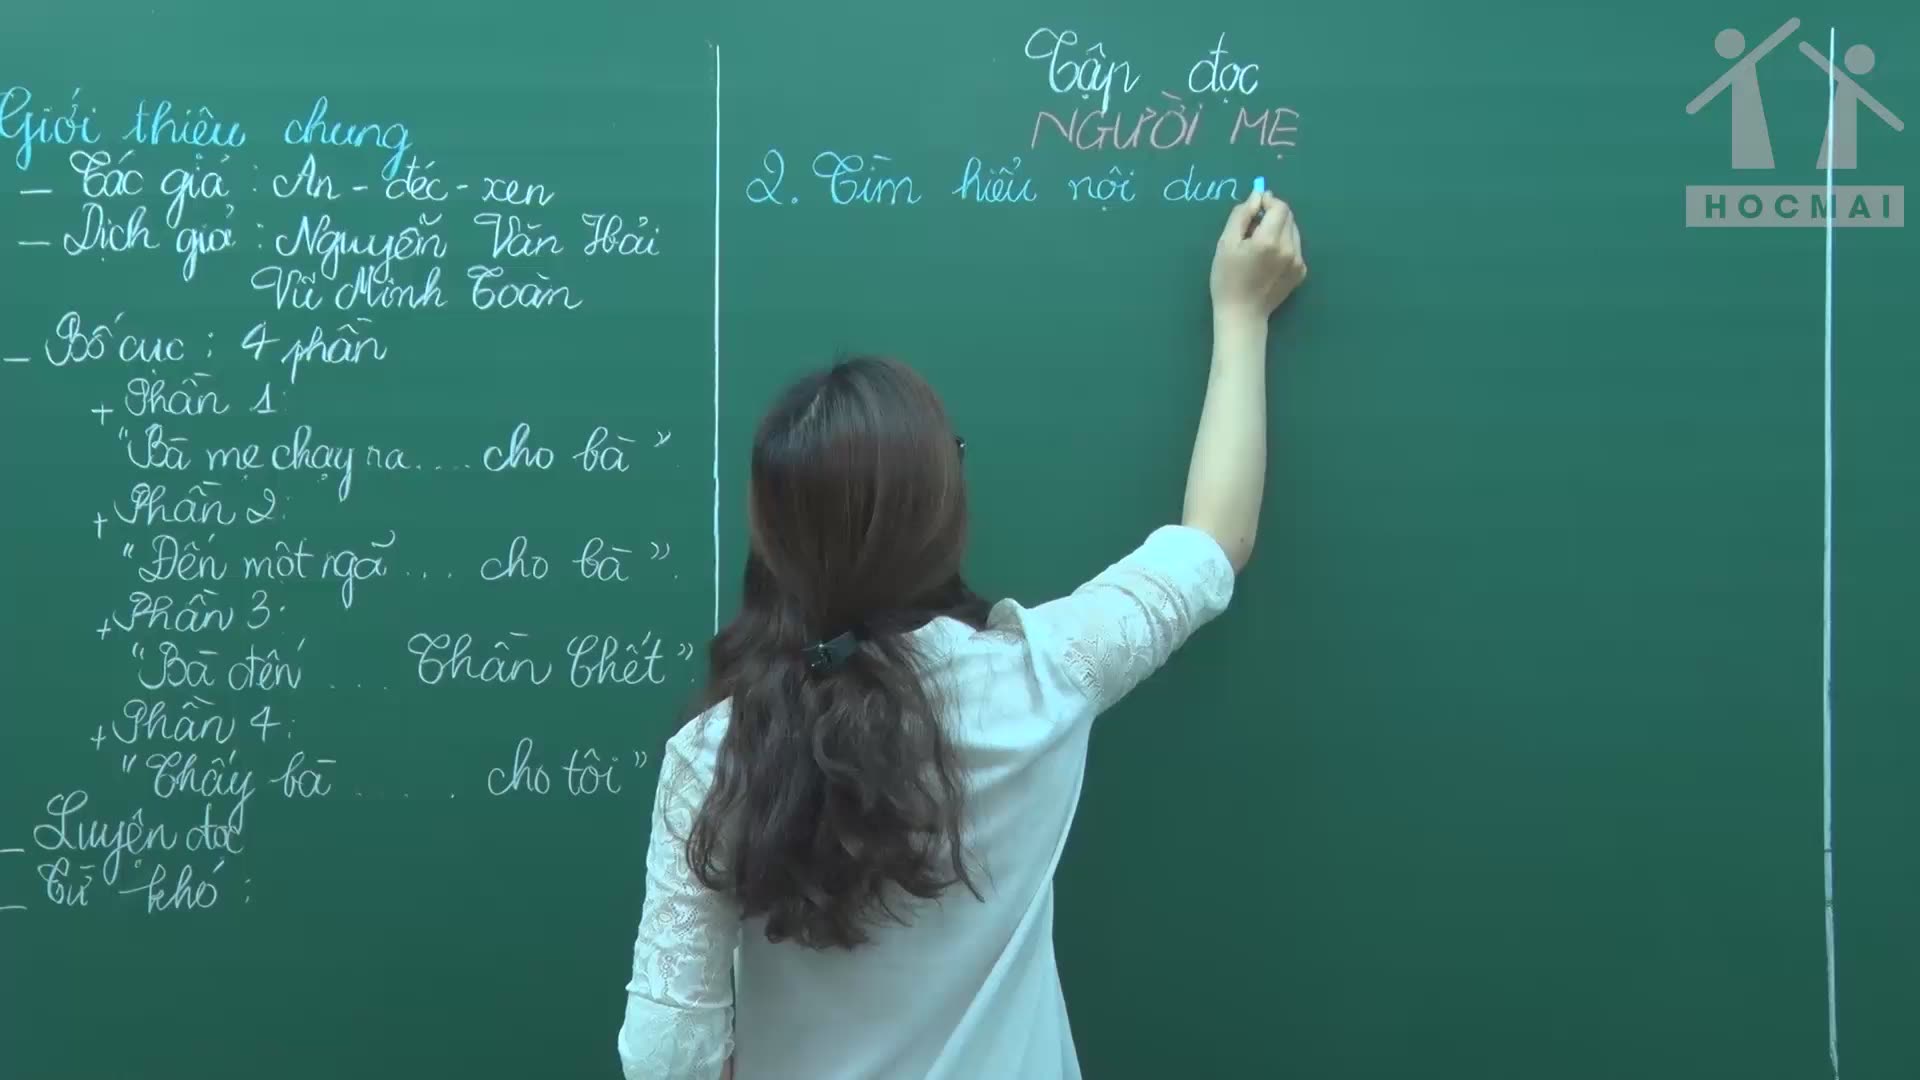 Giới thiệu chung
- Tác giả : An - đéc - xen
- Dịch giả : Nguyễn Văn Hải
Vũ Minh Toàn
- Bố cục : 4 phần
+ Phần 1:
"Bà mẹ chạy ra.... cho bà".
+ Phần 2:
"Đến một ngã ... cho bà".
+ Phần 3:
"Bà đến ... Thần Chết".
+ Phần 4:
"Thấy bà ..... cho tôi"
- Luyện đọc
- Từ khó :
Tập đọc
NGƯỜI MẸ
2. Tìm hiểu nội dun
HOCMAI